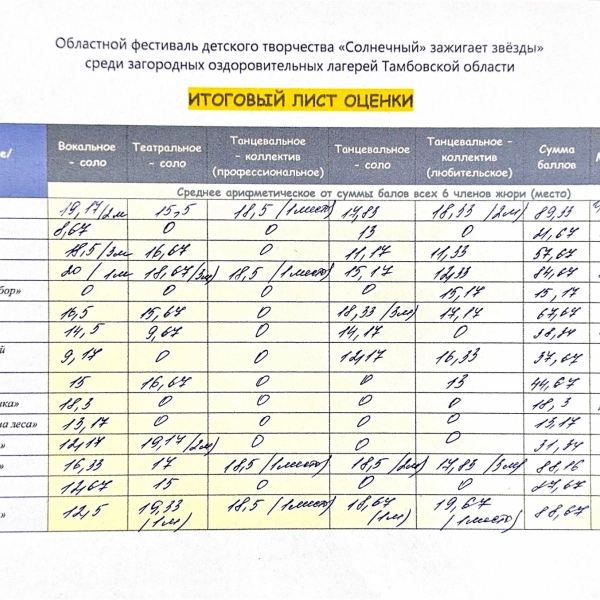 Областной фестиваль детского творчества «Солнечный» зажигает звёзды»
среди загородных оздоровительных лагерей Тамбовской области
ИТОГОВЫЙ ЛИСТ ОЦЕНКИ
е/ Вокальное - соло Театральное - соло Танцевальное - коллектив (профессиональное) Танцевальное - соло Танцевальное - коллектив (любительское) Сумма баллов
Среднее арифметическое от суммы балов всех 6 членов жюри (место)
19,17/2м 15,5 18,5 (1место) 17,83 18,33 (2м) 89,33
8,67 0 0 13 0 21,67
18,5/3м 16,67 0 11,17 11,33 57,67
20 /1м 18,67/3м) 18,5 (1место) 15,17 12,33 84,67
бор» 0 0 0 0 15,17 15,17
15,67 0 18,33 (3м) 17,17 67,67
14,5 9,67 0 14,17 0
й 9,17 0 0 12,17 16,33 37,67
15 16,67 0 0 13 44,67
ка» 18,3 0 0 0 0 18,3
на леса» 13,17 0 0 0 0 13,17
» 12,17 19,17/2м) 0 0 0 31,34
» 16,33 17 18,5 (1место) 18,5 (2м) 17,83 (3м) 88,16
12,67 15 0 0 0
» 12,5 19,33 (1м) 18,5 (1место) 18,67 (1м) 19,67 (1место) 88,67